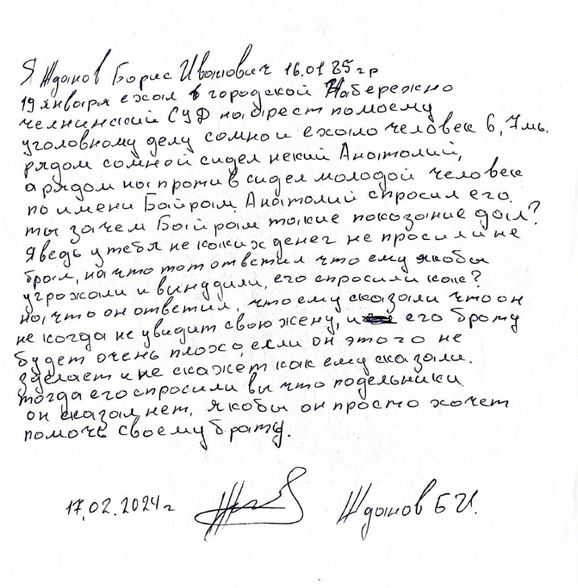 Я Жданов Борис Иванович 16.01 85 гр
19 января ехал в городской Набережно
челнинский Суд на арест помоему
уголовному делу сомной ехало человек 6, 7мь.
рядом сомной сидел некий Анатолий,
а рядом на против сидел молодой человек
по имени Байрам. Анатолий спросил его.
ты зачем Байрам такие показание дал?
Я ведь у тебя не каких денег не просил и не
брал, на что тот ответил что ему якобы
угрожали и винудили, его спросили как?
на, что он ответил, что ему сказали что он
не когда не увидит свою жену, и его брату
будет очень плохо, если он этого не
зделает и не скажет как ему сказали.
тогда его спросили вы что подельники
он сказал нет, якобы он просто хочет
помочь своему брату.
17.02.2024г Жданов Б И.